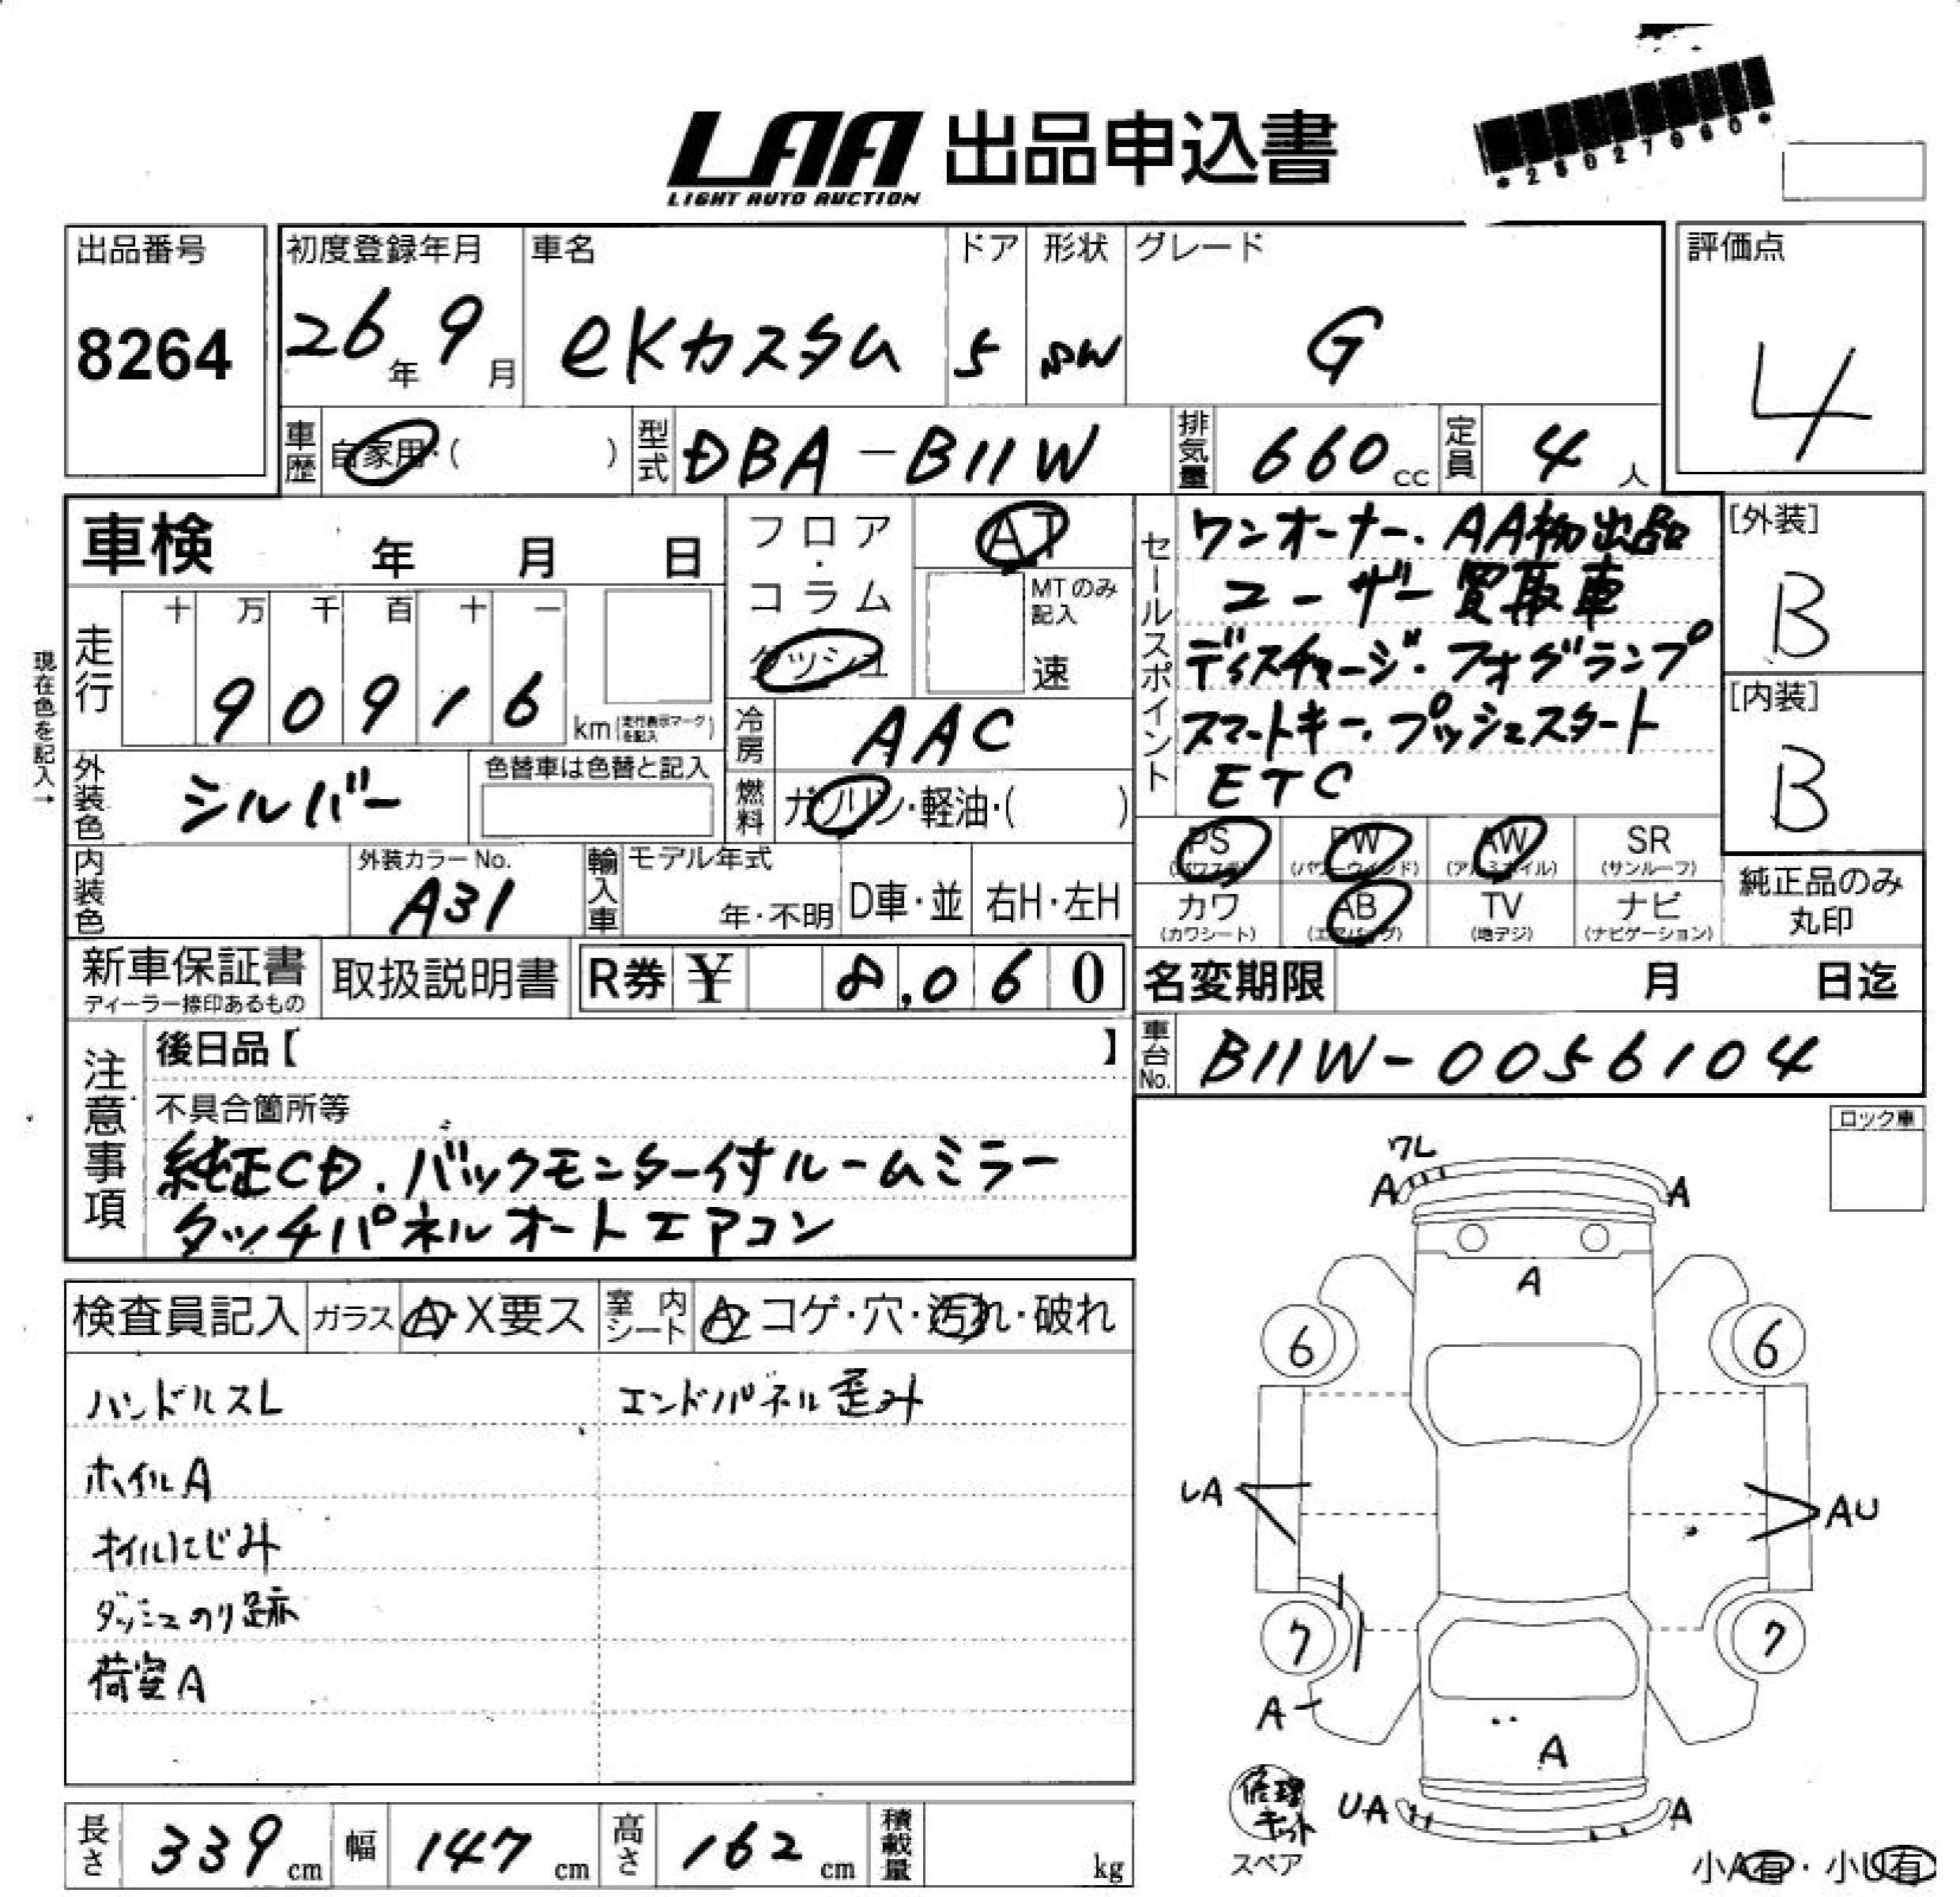 LAA 出品申込書
LIGHT AUTO AUCTION
出品番号
8264
初度登録年月
26年 9月
車名
eKカスタム
ドア
5
形状
SW
グレード
G
評価点
4
車歴
自家用・( )
型式
DBA-B11W
排気量
660 cc
定員
4 人
車検 年 月 日
フロア・コラム
ダッシュ
AT
MTのみ記入
速
現在色を記入→
走行
十 万 千 百 十 一
9 0 9 1 6 km(走行表示マークを記入)
外装色
シルバー
色替車は色替と記入
冷房
AAC
燃料
ガソリン・軽油・( )
内装色
外装カラーNo.
A31
輸入車
モデル年式
年・不明
D車・並
右H・左H
セールスポイント
ワンオーナー.AA初出品
ユーザー買取車
ディスチャージ・フォグランプ
スマートキー.プッシュスタート
ETC
[外装]
B
[内装]
B
PS PW AW SR
(パワステ) (パワーウインド) (アルミホイル) (サンルーフ)
カワ AB TV ナビ
(カワシート) (エアバッグ) (地デジ) (ナビゲーション)
純正品のみ
丸印
新車保証書
ディーラー捺印あるもの
取扱説明書
R券 ¥ 8,060
名変期限 月 日迄
車台No.
B11W-0056104
注意事項
後日品【 】
不具合箇所等
純正CD.バックモンター付ルームミラー
タッチパネルオートエアコン
ロック車
検査員記入 ガラス A・X要ス 室内シート A・コゲ・穴・汚れ・破れ
ハンドルスレ
エンドパネル歪み
ホイルA
オイルにじみ
ダッシュのり跡
荷室A
ワレ
A A
A
6 6
LA AU
7 7
A
A
UA A
修理キット
スペア
小A有・小U有
長さ 339 cm 幅 147 cm 高さ 162 cm 積載量 kg